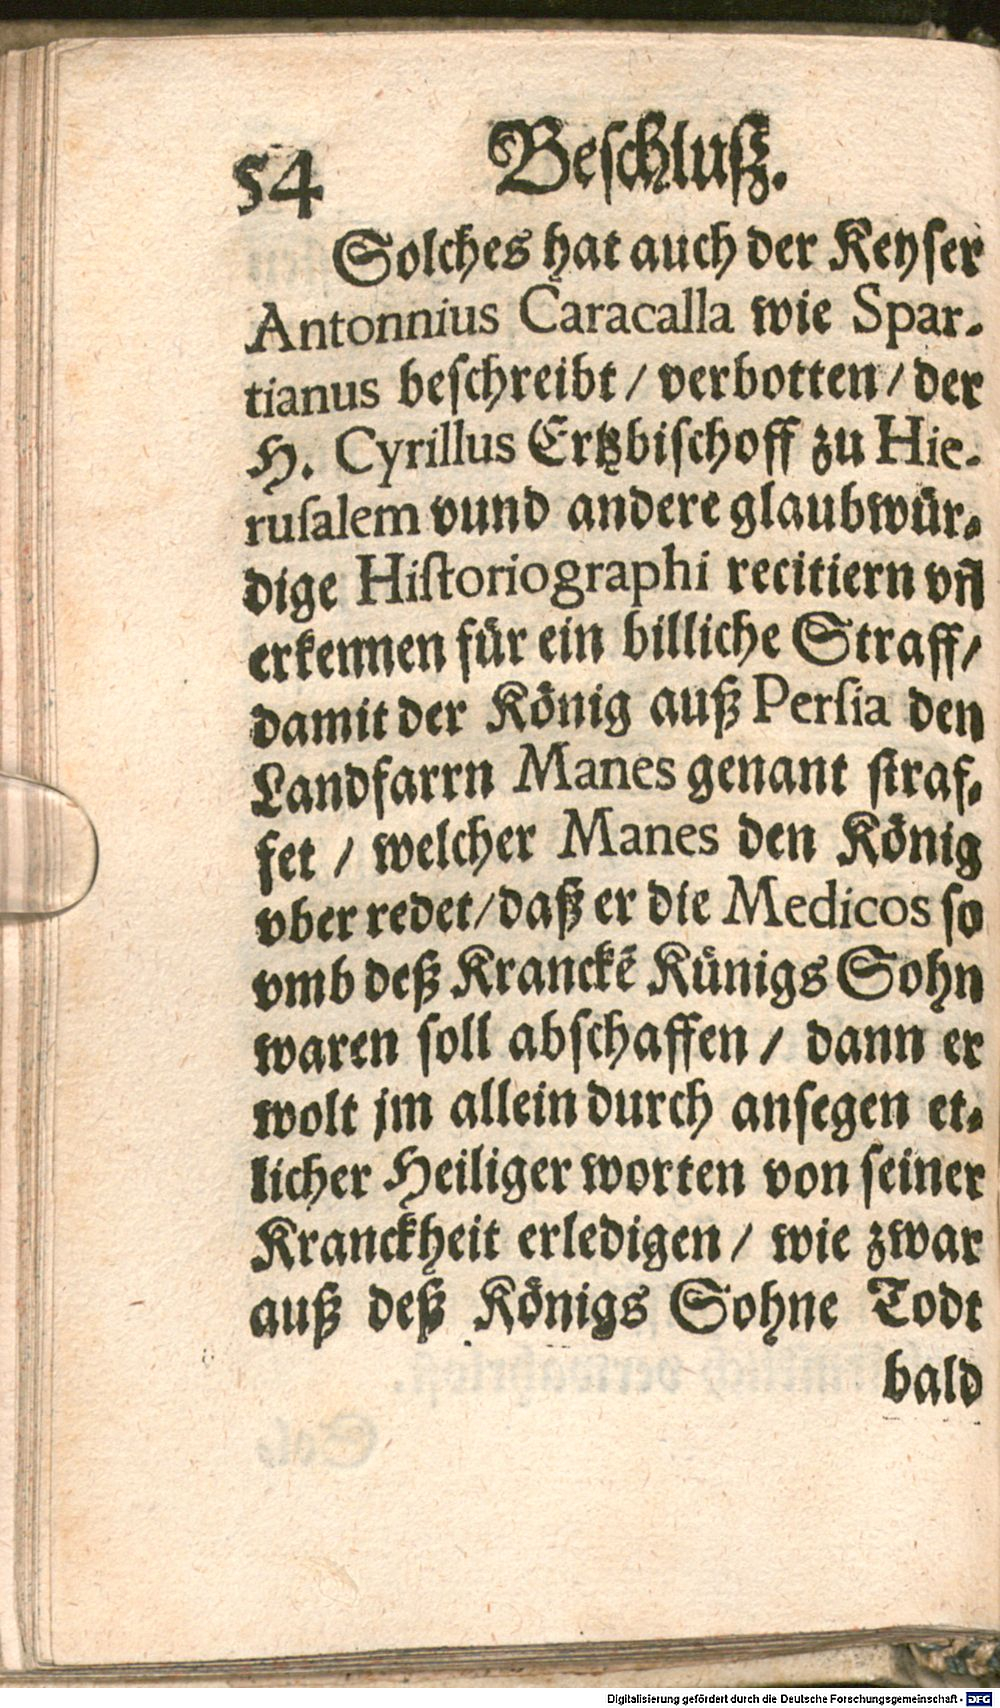 54 Beschluß.
Solches hat auch der Keyser
Antonnius Caracalla wie Spar-
tianus beschreibt / verbotten / der
H. Cyrillus Ertzbischoff zu Hie-
ruſalem vund andere glaubwür-
dige Hiſtoriographi recitiern vñ
erkennen für ein billiche Straff /
damit der König auß Perſia den
Landfarrn Manes genant straf-
fet / welcher Manes den König
vber redet / daß er die Medicos so
vmb deß Kranckē Künigs Sohn
waren soll abschaffen / dann er
wolt jm allein durch ansegen et-
licher Heiliger worten von seiner
Kranckheit erledigen / wie zwar
auß deß Königs Sohne Todt
bald
Digitalisierung gefördert durch die Deutsche Forschungsgemeinschaft - DFG